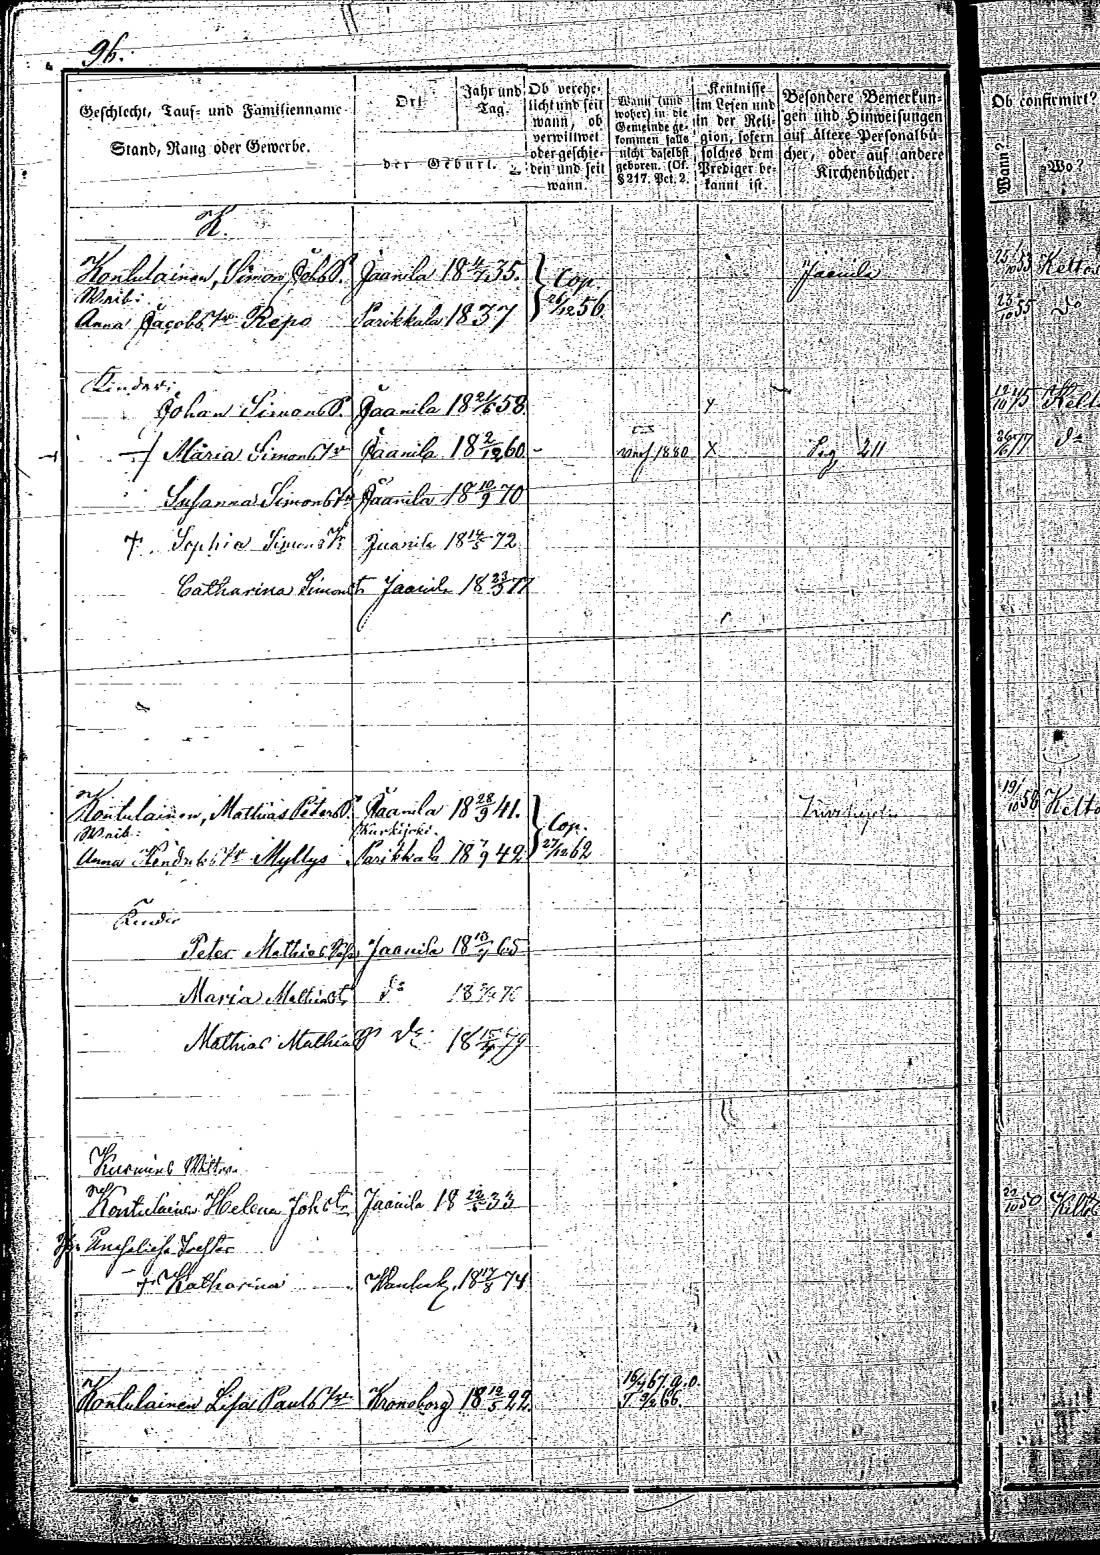 96.
Geschlecht, Tauf- und Familienname
Stand, Rang oder Gewerbe.
Ort
Jahr und Tag.
der Geburt.
Ob verehelicht und seit wann, ob verwittwet oder geschieden und seit wann.
Wann (und woher) in die Gemeinde gekommen falls nicht daselbst geboren. § 217. Pct. 2.
Kentnisse im Lesen und in der Religion, sofern solches dem Prediger bekannt ist.
Besondere Bemerkungen und Hinweisungen auf ältere Personalbücher, oder auf andere Kirchenbücher.
Ob confirmirt?
Wann?
Wo?
K.
Kontulainen, Simon Joh. S. Jaanila 18 4/7 35. Cop. 26/12 56 Jaanila 25/10 53 Kelto
Weib:
Anna Jacobs Tr Repo Parikkala 1837 23/10 55 do
Kinder:
Johan Simons S. Jaanila 18 21/6 58 Kelto
Maria Simons Tr Jaanila 18 2/12 60 1880 X 211 26/6 77 do
Susanna Simons Tr Jaanila 18 10/9 70
† Sophia Simons Jaanila 18 14/5 72
Catharina Simons t. Jaanila 18 23/3 77
Kontulainen, Mathias Peters S. Jaanila 18 28/9 41. Cop. 27/12 62 19/10 58 Kelto
Weib: Kurkijoki.
Anna Hendriks Tr Myllys Parikkala 18 7/9 42
Kinder
Peter Mathias Jaanila 18 65
Maria Mathias t. do 18 76
Mathias Mathias do 18 79
Kurmins
Kontulainen Helena Joh. t. Jaanila 18 33 22/10 50 Kelto
Uneheliche Tochter
† Katharina 18 17/8 74
Kontulainen Lisa Pauls Tr Kronoborg 18 12/5 22. 16/4 67 a. o.
T. 66.